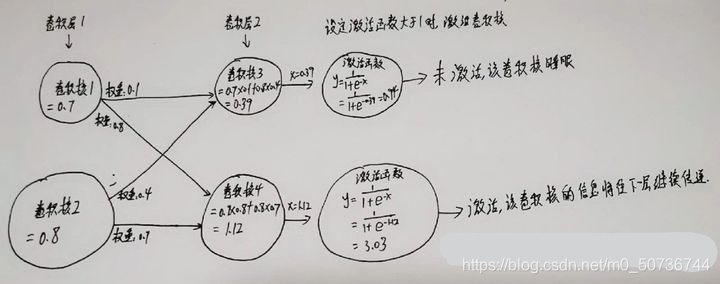 卷积层1
卷积层2
设定激活函数大于1时,激活卷积核
卷积核1
=0.7
权重:0.1
权重:0.8
卷积核3
=0.7×0.1+0.8×0.4
=0.39
x=0.39
激活函数
y=1/(1+e^-x)
=1/(1+e^-0.39)=0.94
未激活,该卷积核睡眠
卷积核2
=0.8
权重:0.4
权重:0.7
卷积核4
=0.7×0.8+0.8×0.7
=1.12
x=1.12
激活函数
y=1/(1+e^-x)
=1/(1+e^-1.12)
=3.03
激活,该卷积核的信息将往下一层继续传递.
https://blog.csdn.net/m0_50736744